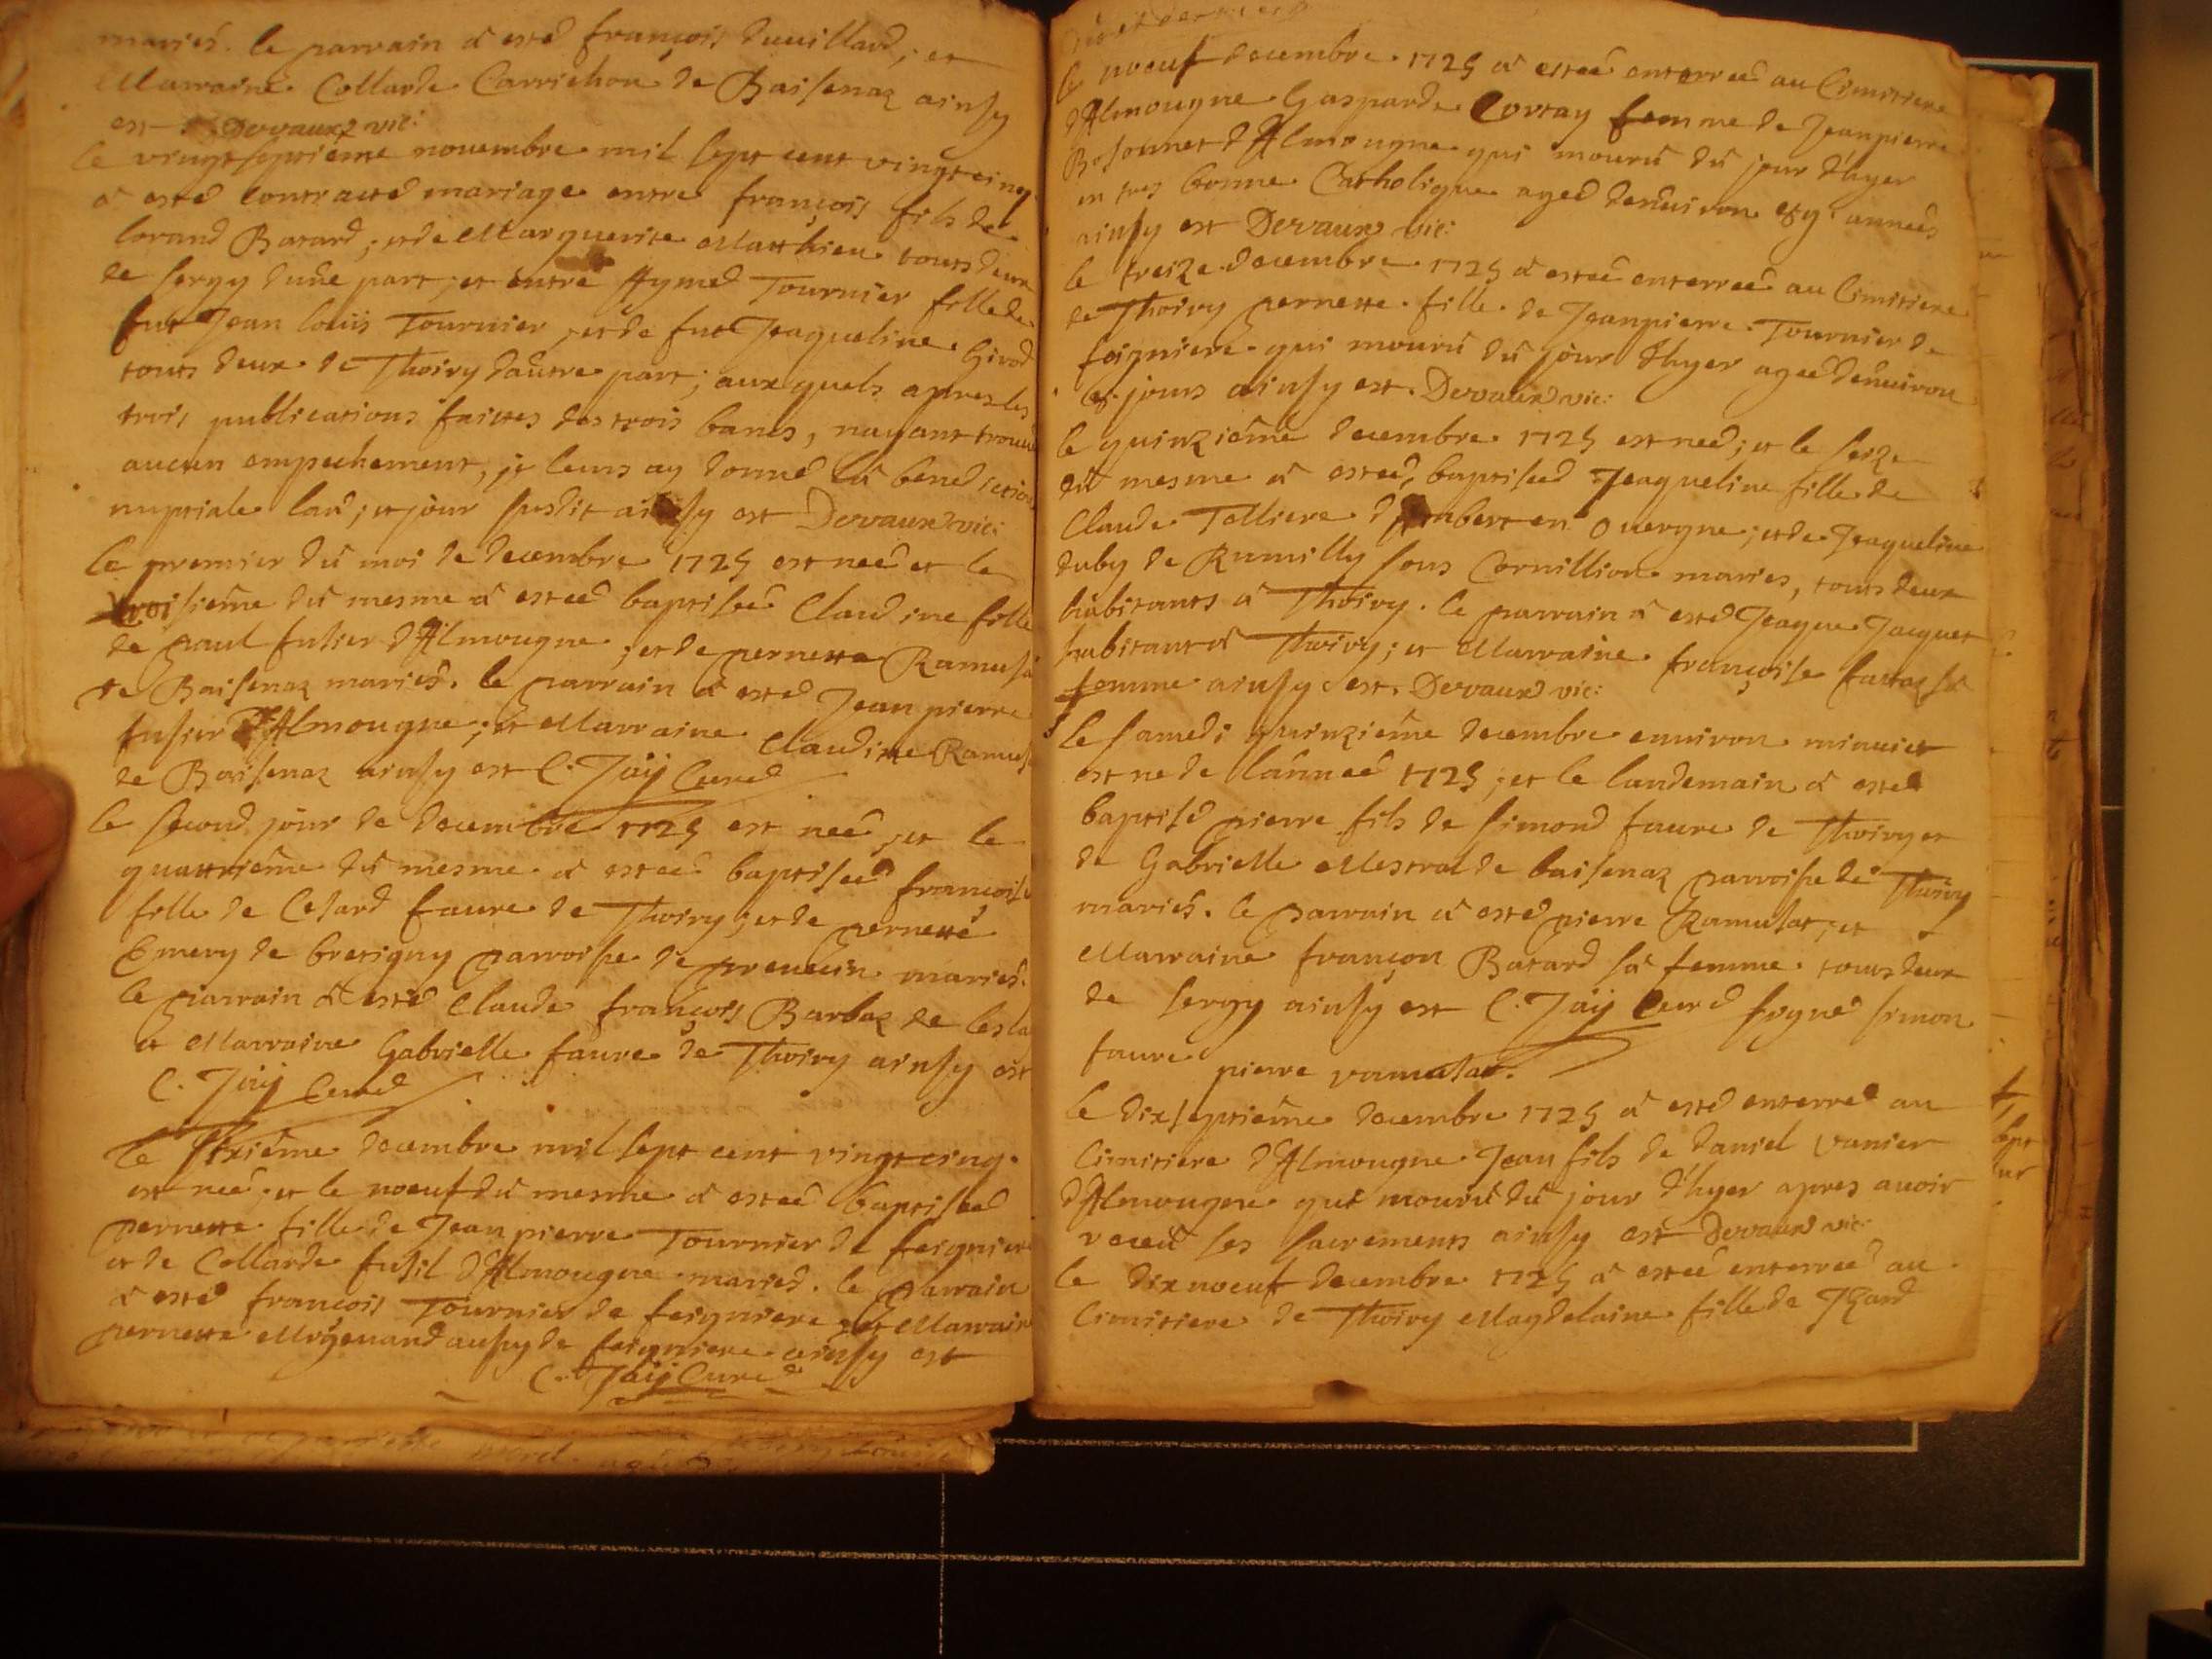 mariés. le parrain à esté françois duuillard; et
Marraine Collarde Carrichon de Baisenaz ainsy
est Dervaux vic:
le vingtseptiéme nouembre mil sept cent vingtcinq
à esté contracté mariage entre françois fils de
lorand Batard; et de Marguerite Matthieu touts deux
de sergy dune part; et entre Aymé Tournier fille de
fut Jean loüis Tournier, et de fut Jeaqueline Girod
touts deux de Thoiry dautre part; aux quels apres les
trois publications faittes des trois bancs, nayant trouué
aucun empechement, je leurs ay donné la benediction
nuptiale lan; et jour susdit ainsy est Dervaux vic:
le premier du moi de decembre 1725 est neé et le
troisiéme du mesme à esteé baptiseé Claudine fille
de paul fusier dAlmougne; et de pernette Ramusa
de Baisenaz mariés. le parrain à esté Jean pierre
fusier dAlmougne; et Marraine Claudine Ramus
de Baisenaz ainsy est C. Jaÿ Curé
le second jour de decembre 1725 est neé, et le
quattriéme du mesme à esteé baptiseé françoise
fille de Cesard faure de Thoiry; et de pernette
Emery de bretigny parroisse de preuecin mariés.
le parrain à esté Claude françois Barbaz de
et Marraine Gabrielle faure de Thoiry ainsy est
C. Jaÿ Curé
le sixiéme decembre mil sept cent vingtcinq
est neé; et le noeuf du mesme à esteé baptiseé
pernette fille de Jean pierre Tournier de feigniere
et de Collarde fusil dAlmougne mariés. le parrain
à esté françois Tournier de feigniere, et Marraine
pernette aussy de feigniere ainsy est
C. Jaÿ Curé
le noeuf decembre 1725 à esteé enterreé au Cimitiere
dAlmougne Gasparde Cortay femme de Jeanpierre
Bosonnet dAlmougne qui mourû du jour dhyer
en tres bonne Catholique ageé denuiron anneés
ainsy est Dervaux vic:
le treize decembre 1725 à esteé enterreé au Cimitiere
de Thoiry pernette fille de Jeanpierre Tournier de
feigniere qui mourû du jour dhyer ageé denuiron
jours ainsy est Dervaux vic:
le quinziéme decembre 1725 est neé; et le seize
du mesme à esteé baptiseé Jeaqueline fille de
Claude Tolliere dAmbert en Ouergne; et de Jeaqueline
duby de Rumilly sous Cornillion mariés, tous deux
habitants à Thoiry. le parrain à esté Jeaque Jacquet
habitant à Thoiry; et Marraine françoise sa
femme ainsy est. Dervaux vic:
le samedi quinziéme decembre enuiron minuict
est ne de lanneé 1725; et le landemain à esté
baptisé pierre fils de simond faure de Thoiry et
de Gabrielle Mestral de baisenaz parroisse de Thoiry
mariés. le parrain à esté pierre Ramusat, et
Marraine françon Batard sa femme. tous deux
de sergy ainsy est C. Jaÿ Curé sygné simon
faure pierre ramusat.
le dixseptiéme decembre 1725 à esté enterré au
Cimitiere dAlmougne Jean fils de daniel vanier
dAlmougne qui mourû du jour dhyer apres auoir
receu ses sacrements ainsy est Dervaux vic:
le dixnoeuf decembre 1725 à esteé enterreé au
Cimitiere de Thoiry Magdelaine fille de